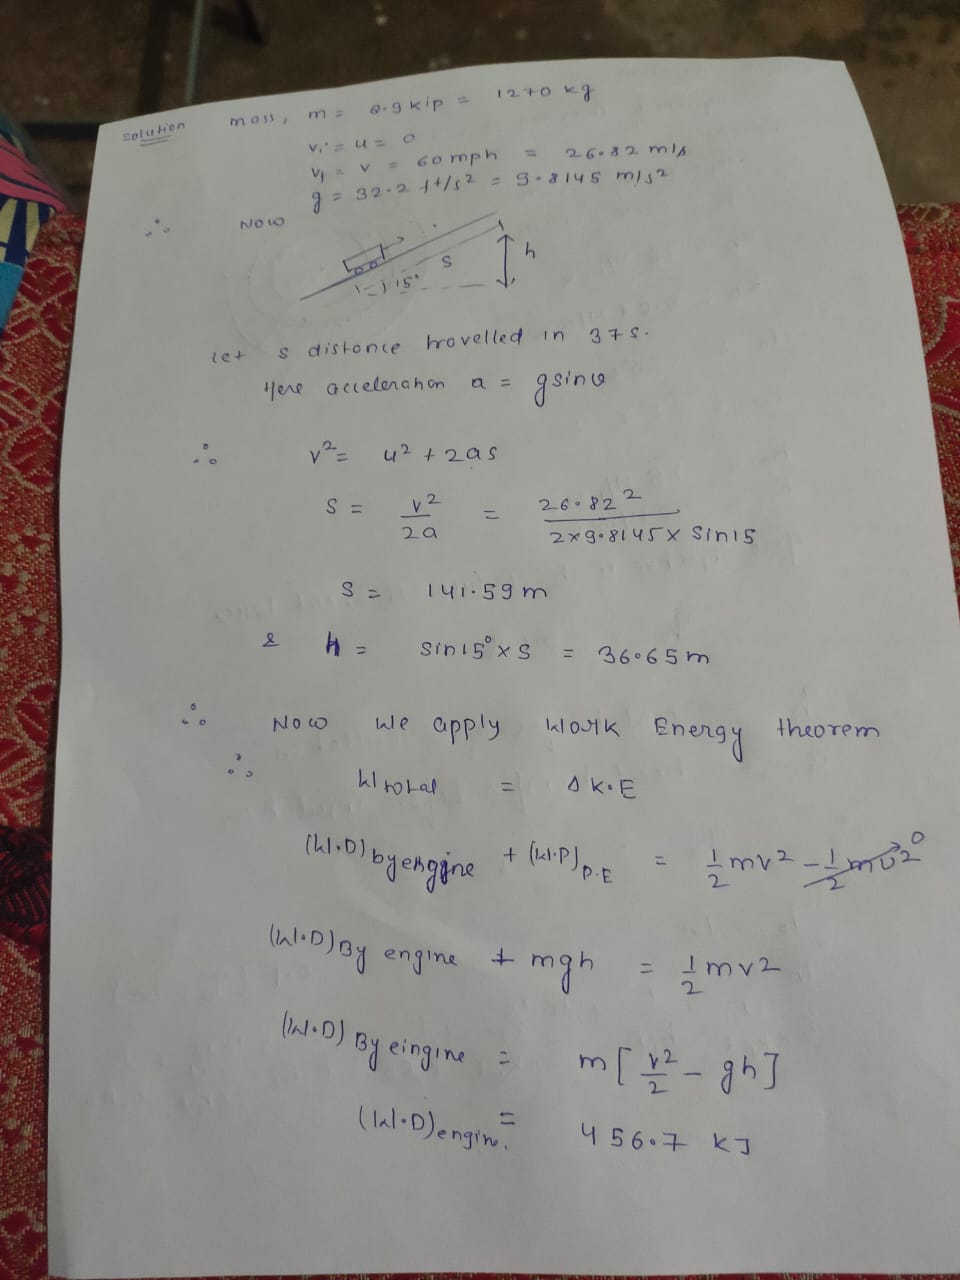 solution mass, m = 2.9 kip = 1270 kg
vi = u = 0
vf = v = 60 mph = 26.82 m/s
g = 32.2 ft/s² = 9.8145 m/s²
∴ Now
s
h
15°
let s distance travelled in 37s.
Here acceleration a = g sin θ
∴ v² = u² + 2as
s = v²/2a = 26.82²/2×9.8145× sin15
s = 141.59 m
& h = sin15° × s = 36.65 m
∴ Now We apply Work Energy theorem
∴ W total = Δ K.E
(W.D) by engine + (W.D) P.E = 1/2 mv² - 1/2 mu² 0
(W.D) By engine + mgh = 1/2 mv2
(W.D) By eingine = m[v²/2 - gh]
(W.D) engine. = 456.7 KJ